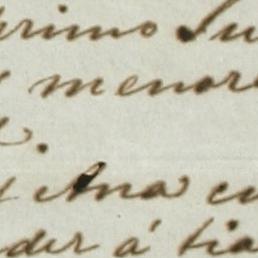 primo Su
menore
Ana cu
der á tia